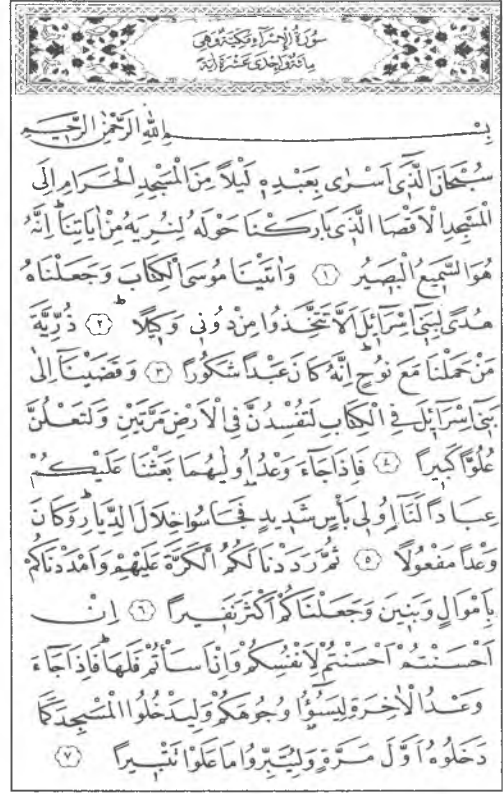 سُورَةُ الْاِسْرَٓاءِ مَكِّيَّةٌ وَهِىَ
مِائَةٌ وَاِحْدٰى عَشْرَةَ اٰيَةً
بِسْمِ اللّٰهِ الرَّحْمٰنِ الرَّحِيمِ
سُبْحَانَ الَّذٖٓى اَسْرٰى بِعَبْدِهٖ لَيْلًا مِنَ الْمَسْجِدِ الْحَرَامِ اِلَى
الْمَسْجِدِ الْاَقْصَا الَّذٖى بَارَكْنَا حَوْلَهُ لِنُرِيَهُ مِنْ اٰيَاتِنَا اِنَّهُ
هُوَ السَّمٖيعُ الْبَصٖيرُ ﴿١﴾ وَاٰتَيْنَا مُوسَى الْكِتَابَ وَجَعَلْنَاهُ
هُدًى لِبَنٖٓى اِسْرَٓائٖلَ اَلَّا تَتَّخِذُوا مِنْ دُونٖى وَكٖيلًا ﴿٢﴾ ذُرِّيَّةَ
مَنْ حَمَلْنَا مَعَ نُوحٍ اِنَّهُ كَانَ عَبْدًا شَكُورًا ﴿٣﴾ وَقَضَيْنَٓا اِلٰى
بَنٖٓى اِسْرَٓائٖلَ فِى الْكِتَابِ لَتُفْسِدُنَّ فِى الْاَرْضِ مَرَّتَيْنِ وَلَتَعْلُنَّ
عُلُوًّا كَبٖيرًا ﴿٤﴾ فَاِذَا جَٓاءَ وَعْدُ اُو۫لٰيهُمَا بَعَثْنَا عَلَيْكُمْ
عِبَادًا لَنَٓا اُو۬لٖى بَاْسٍ شَدٖيدٍ فَجَاسُوا خِلَالَ الدِّيَارِ وَكَانَ
وَعْدًا مَفْعُولًا ﴿٥﴾ ثُمَّ رَدَدْنَا لَكُمُ الْكَرَّةَ عَلَيْهِمْ وَاَمْدَدْنَاكُمْ
بِاَمْوَالٍ وَبَنٖينَ وَجَعَلْنَاكُمْ اَكْثَرَ نَفٖيرًا ﴿٦﴾ اِنْ
اَحْسَنْتُمْ اَحْسَنْتُمْ لِاَنْفُسِكُمْ وَاِنْ اَسَاْتُمْ فَلَهَا فَاِذَا جَٓاءَ
وَعْدُ الْاٰخِرَةِ لِيَسُٓؤُ۫ا وُجُوهَكُمْ وَلِيَدْخُلُوا الْمَسْجِدَ كَمَا
دَخَلُوهُ اَوَّلَ مَرَّةٍ وَلِيُتَبِّرُوا مَا عَلَوْا تَتْبٖيرًا ﴿٧﴾